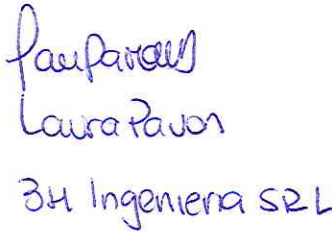 Laura Pavon
3H Ingenieria SRL